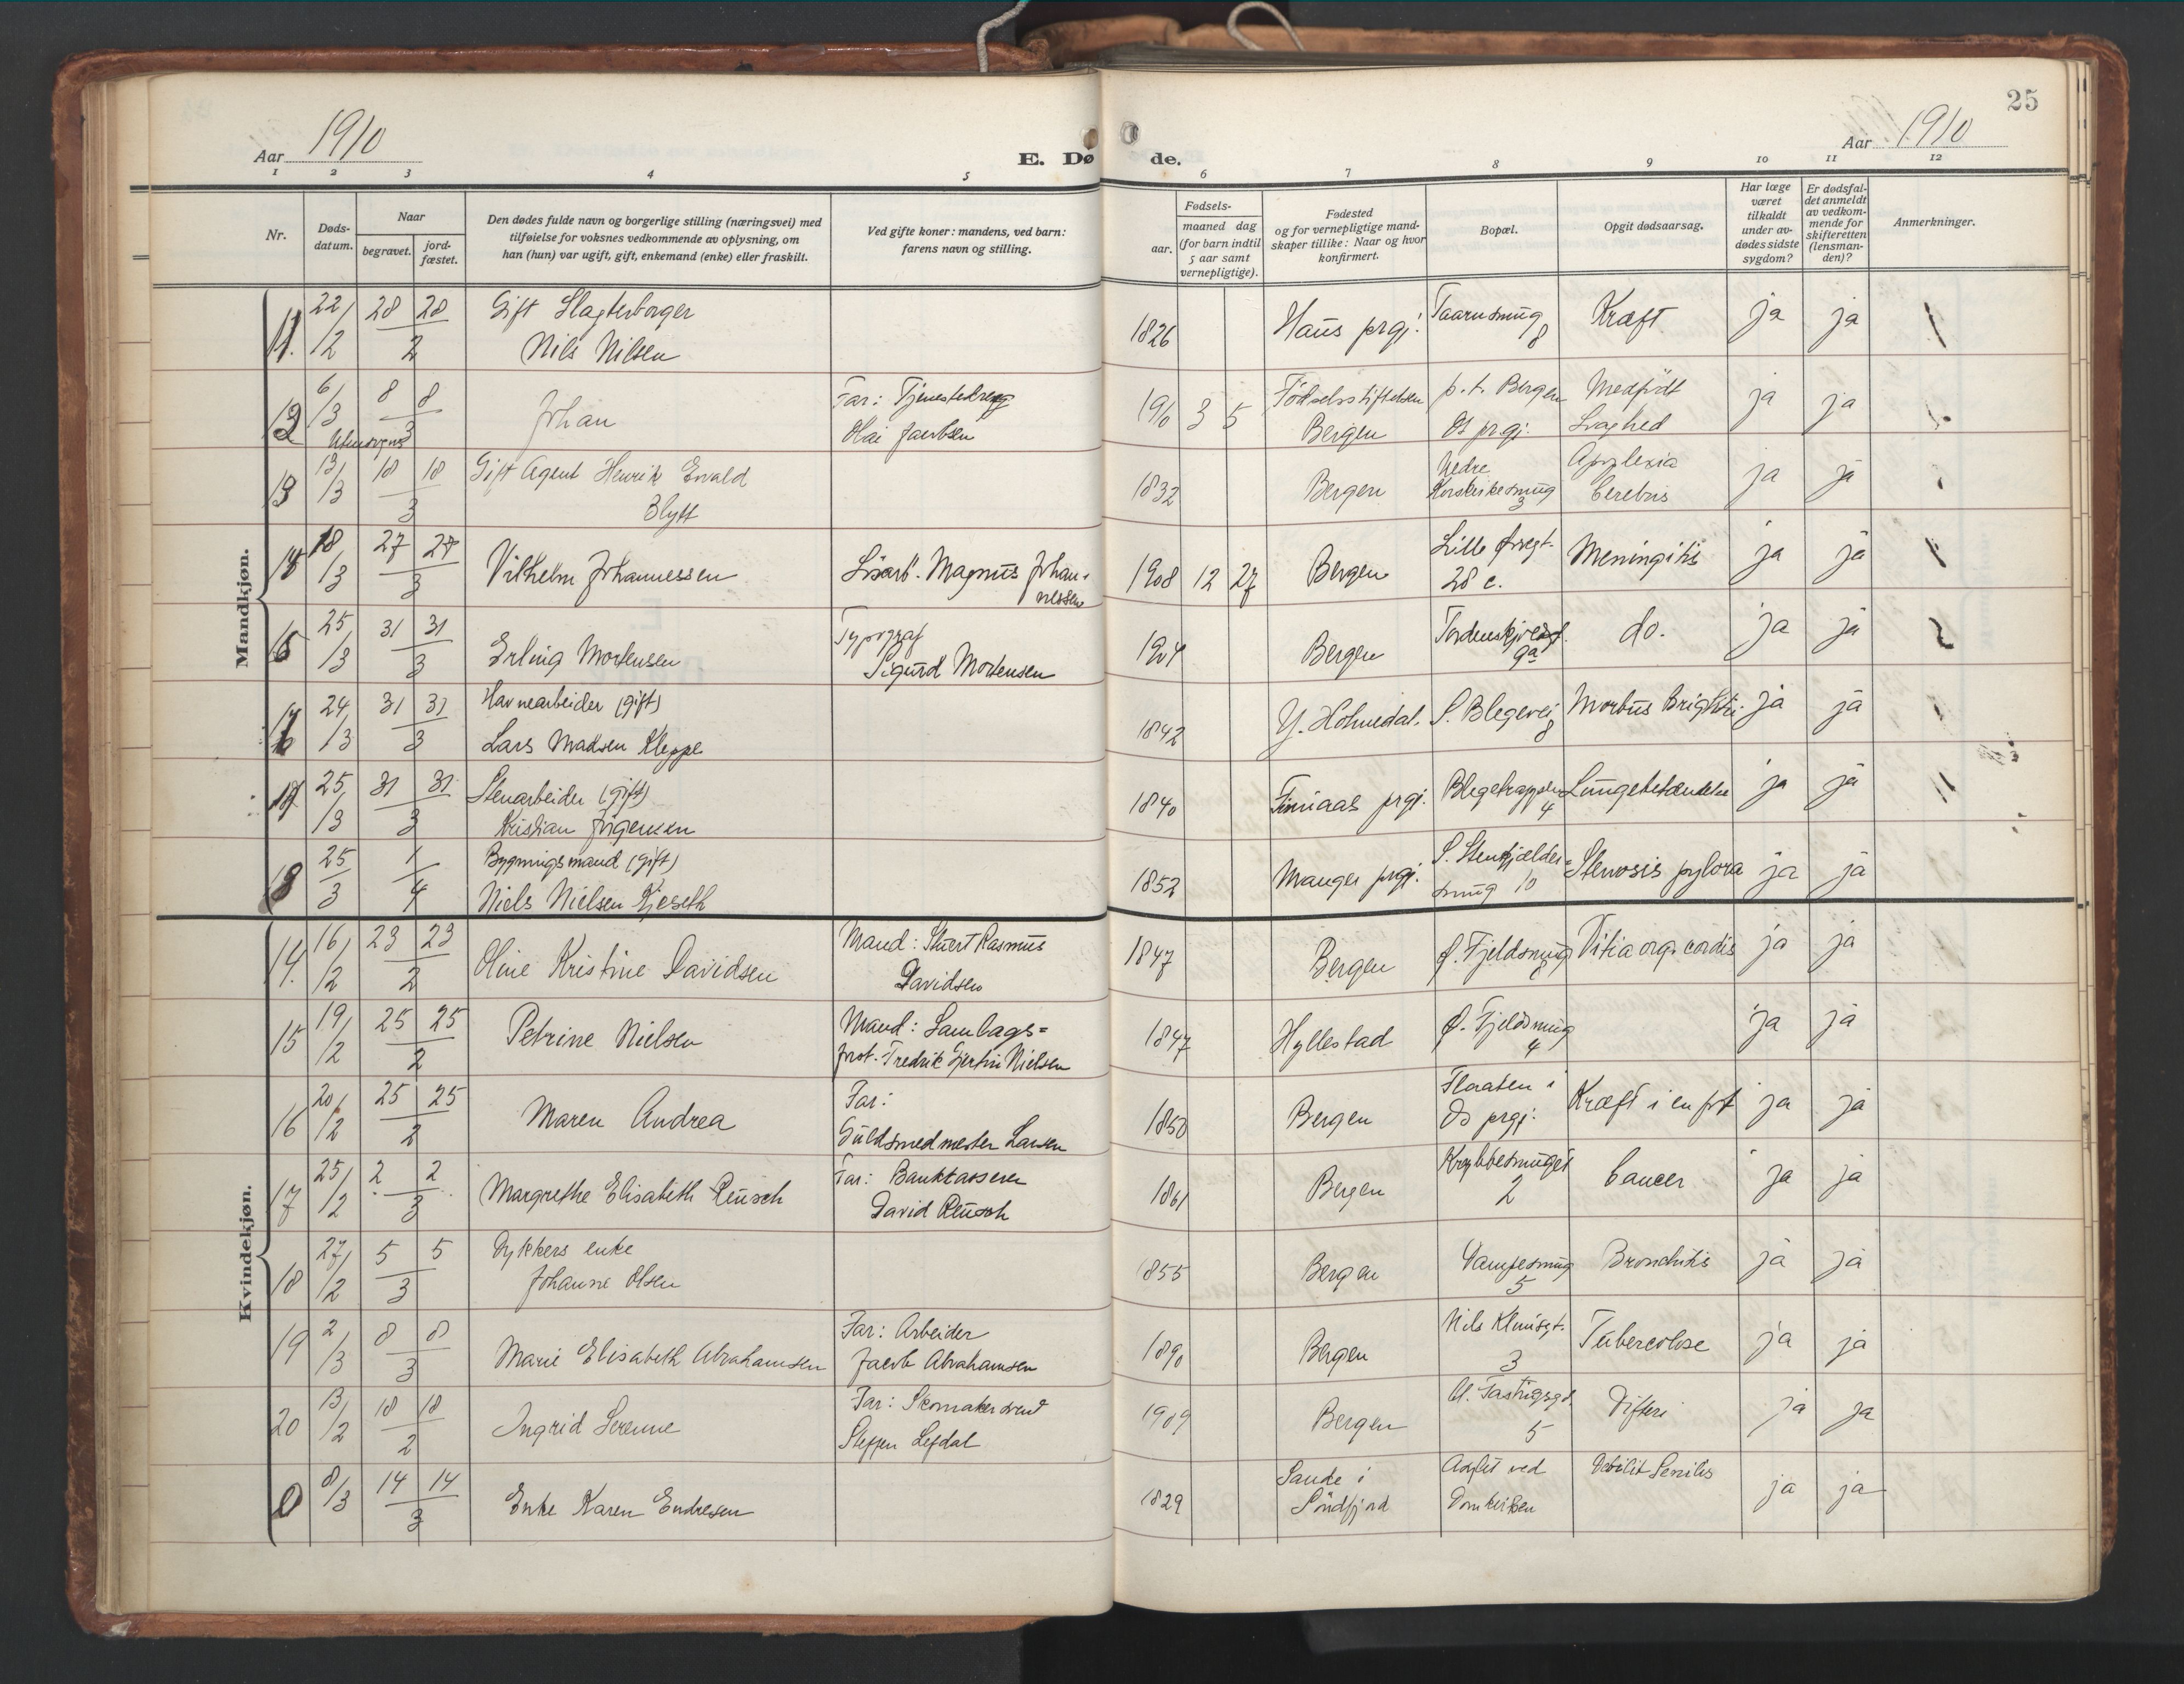 25
Aar 1910
Aar 1910
E. Dø de.
1 2 3 4 5 6 7 8 9 10 11 12
Nr.
Døds-datum.
Naar
begravet.
jord-fæstet.
Den dødes fulde navn og borgerlige stilling (næringsvei) med
tilføielse for voksnes vedkommende av oplysning, om
han (hun) var ugift, gift, enkemand (enke) eller fraskilt.
Ved gifte koner: mandens, ved barn:
farens navn og stilling.
Fødsels-
aar.
maaned dag
(for barn indtil
5 aar samt
vernepligtige).
Fødested
og for vernepligtige mand-
skaper tillike: Naar og hvor
konfirmert.
Bopæl.
Opgit dødsaarsag.
Har læge
været
tilkaldt
under av-
dødes sidste
sygdom?
Er dødsfal-
det anmeldt
av vedkom-
mende for
skifteretten
(lensman-
den)?
Anmerkninger.
Mandkjøn.
11. 22/2 28 28/2 Gift Slagterborger
Nils Nilsen
1826 Haus prgj. Taarnsmug 8 Kræft ja ja
12 6/3 8 8/3 Johan
Far: Tjenestedreng
Olai Jacobsen
1910 3 5 Fødselsstiftelsen
Bergen
p.t. Bergen
Os prgj.
Medfødt
Svaghed
ja ja
13 13/3 18 18/3 Gift Agent Henrik Ewald
Blytt
1832 Bergen
Nedre
Korskirkesmug 3
Apoplexia
Cerebris
ja ja
18/3 27 27/3 Vilhelm Johannessen
Løsarb. Magnus Johan-
nessen
1908 12 27 Bergen
Lille Øvregt.
28 c.
Meningitis ja ja
25/3 31 31/3 Erling Mortensen
Typograf
Sigurd Mortensen
1904 Bergen Tordenskjoldsgt.
9a
do. ja ja
24/3 31 31/3 Havnearbeider (gift)
Lars Madsen Kleppe
1842 Y. Holmedal. S. Blegevei 8 Morbus Brightii ja ja
25/3 31 31/3 Stenarbeider (gift)
Kristian Jørgensen
1840 Finnaas prgj. Blegetrappen 4 Lungebetændelse ja ja
25/3 1/4 Bygningsmand (gift)
Niels Nielsen Kjeseth
1852 Manger prgj. S. Stenkjelder-
smug 10
Stenosis pylora ja ja
Kvindekjøn.
14. 16/2 23 23/2 Oline Kristine Davidsen
Mand: Stuert Rasmus
Davidsen
1847 Bergen Ø. Fjeldsmug Vitia org. cordis ja ja
15 19/2 25 25/2 Petrine Nielsen
Mand: Samlags-
prot. Fredrik Gjertin Nielsen
1847 Hyllestad Ø. Fjeldsmug
4
ja ja
16 20/2 25 25/2 Maren Andrea
Far:
Guldsmedmester Larsen
1850 Bergen
Flaaten i
Os prgj.
Kræft i en fot ja ja
17 25/2 2 2/3 Margrethe Elisabeth Reusch
Far: Bankkasserer
David Reusch
1861 Bergen
Krybbesmuget
2
Cancer ja ja
18 27/2 5 5/3 Dykkers enke
Johanne Olsen
1855 Bergen
Vampesmug
5
Bronchitis ja ja
19 2/3 8 8/3 Marie Elisabeth Abrahamsen
Far: Arbeider
Jacob Abrahamsen
1890 Bergen
Nils Klimsgt.
3
Tuberculose ja ja
20 13/2 18 18/2 Ingrid Serenne
Far: Skomakersvend
Steffen Lefdal
1909 Bergen
5
Difteri ja ja
8/3 14 14/3 Enke Karen Endresen
1829
Sande i
Søndfjord
Asylet ved
Domkirken
Debilit Senilis ja ja